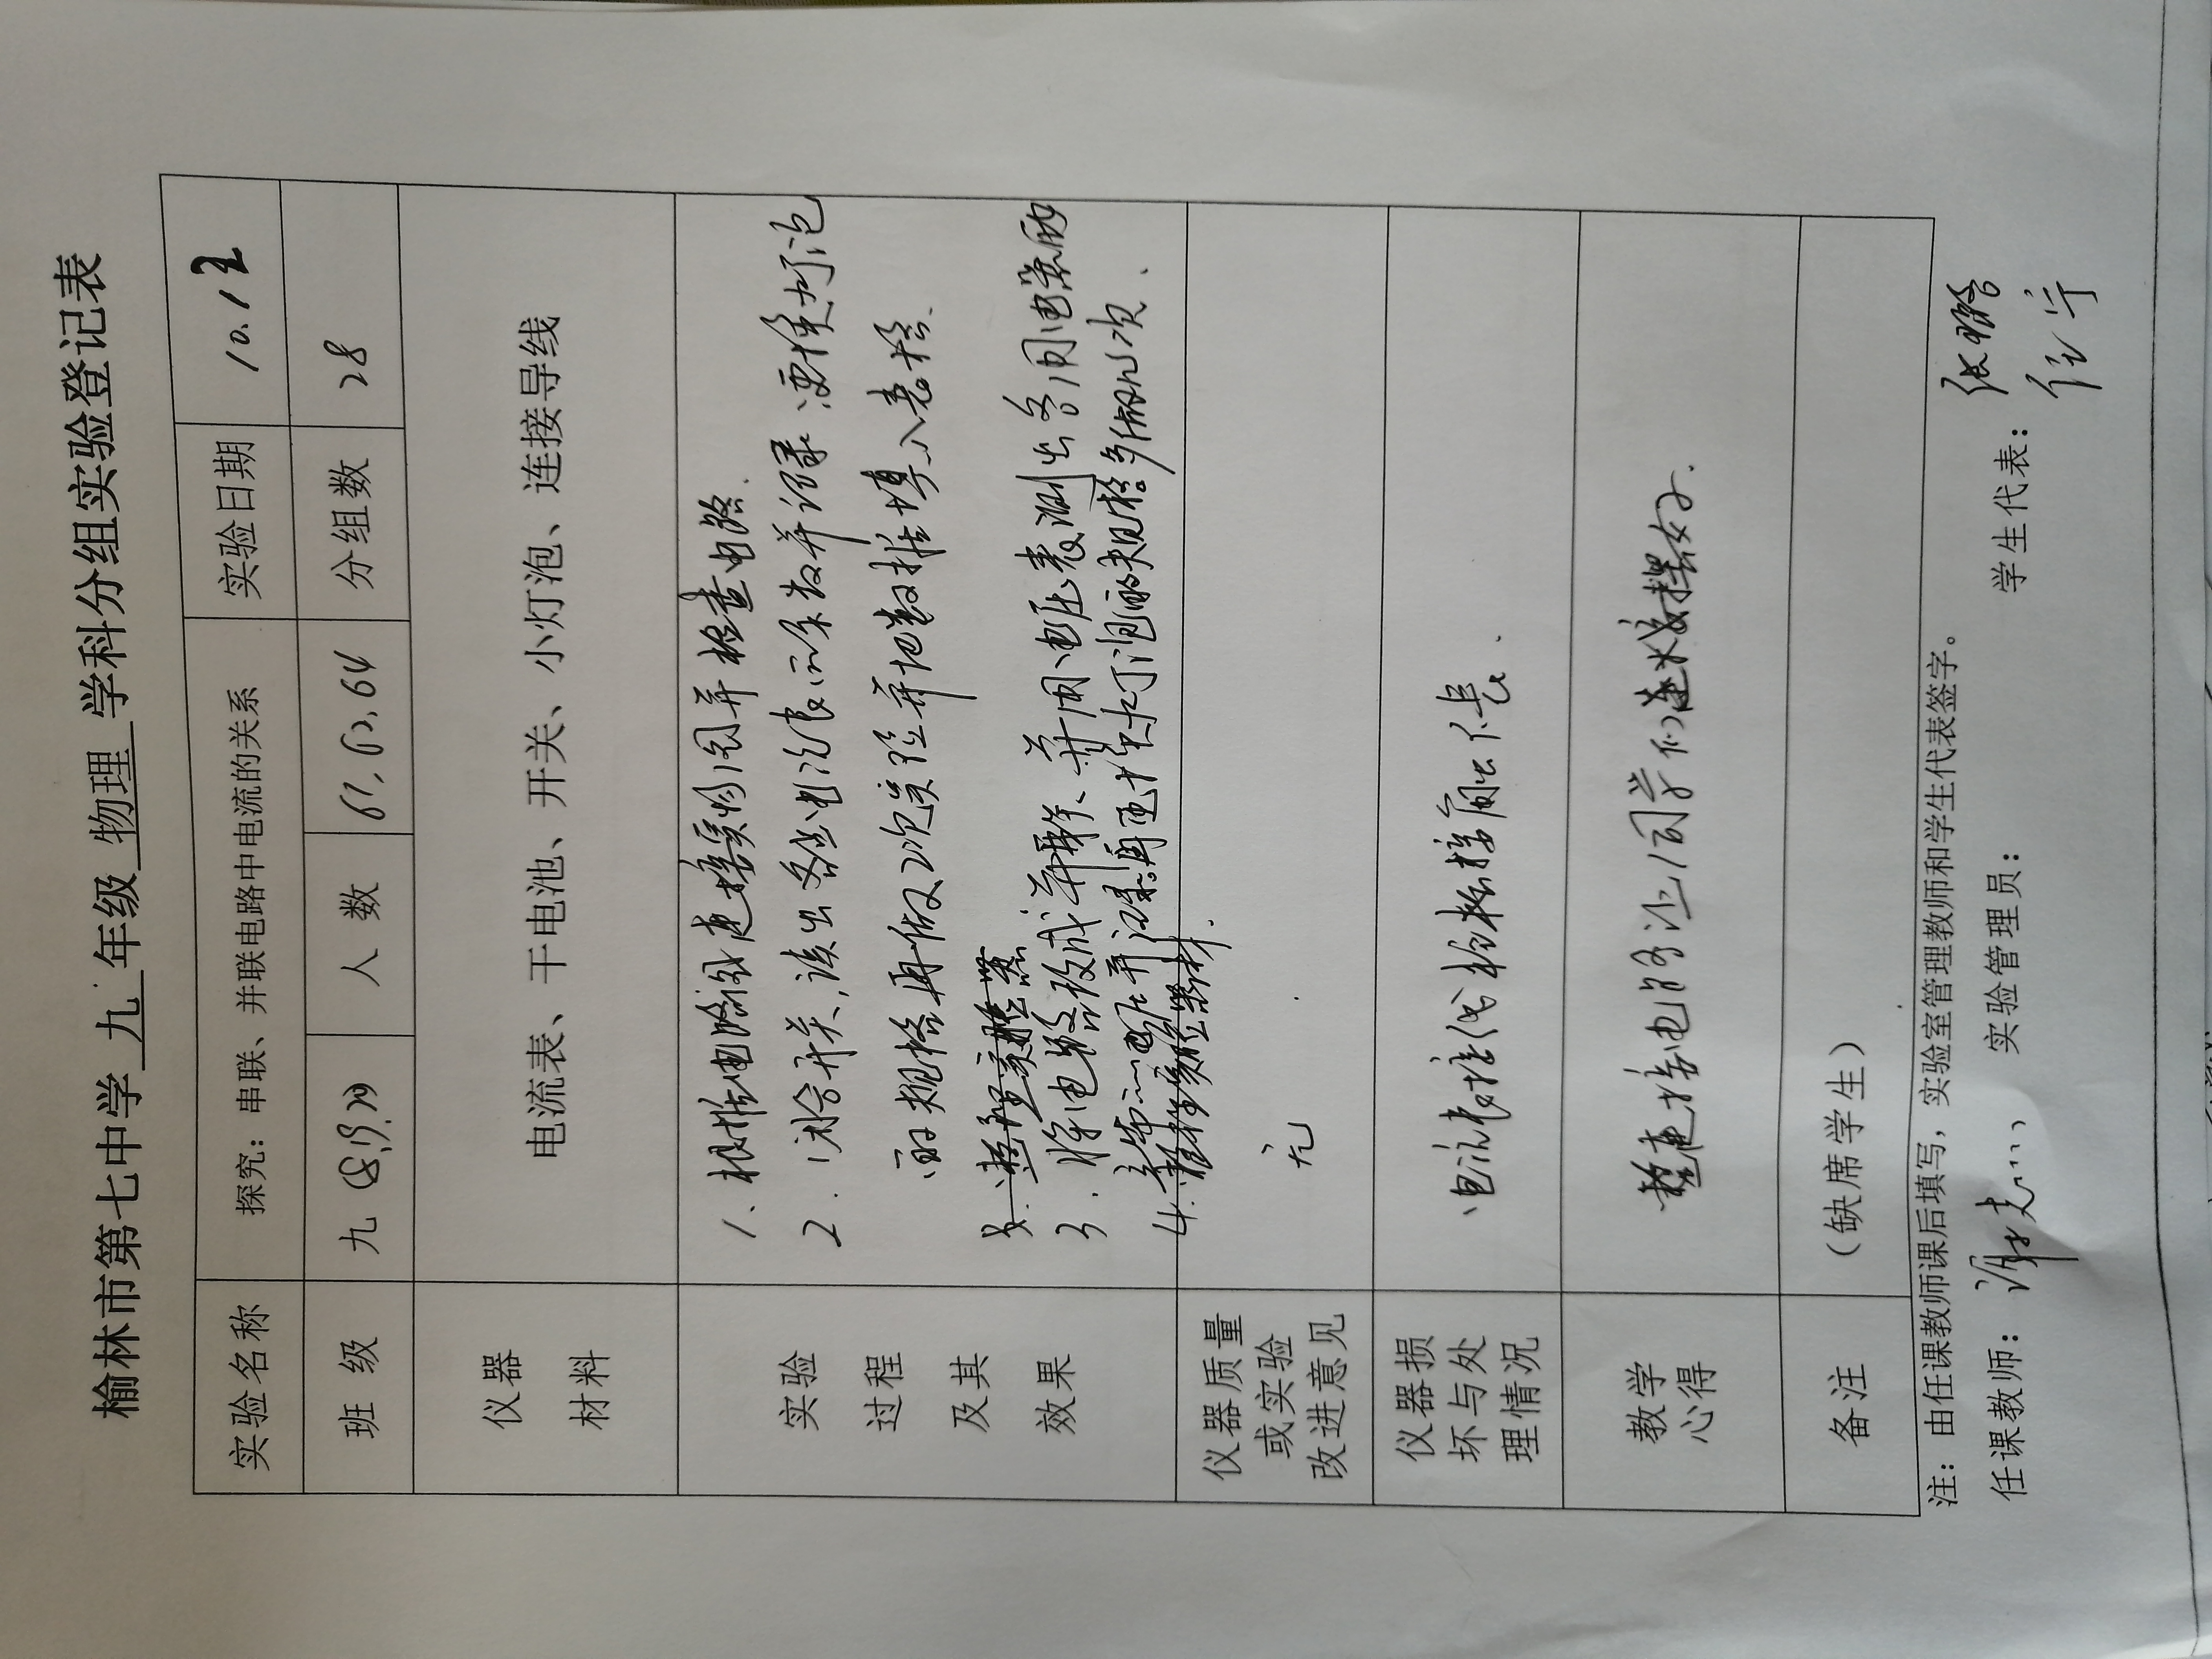 榆林市第七中学 九 年级 物理 学科分组实验登记表
实验名称 探究：串联、并联电路中电流的关系 实验日期 10.1
班 级 九 人 数 61, 62, 64 分组数 28
仪器
材料
电流表、干电池、开关、小灯泡、连接导线
实验
过程
及其
效果
1、根据电路图连接实物图并检查电路.
2.闭合开关,读出各出电流表示数并记录.更换灯泡
的规格再做2次实验并把数据填入表格.
整理实验
3.将电路改成并联、并用电压表测出各用电器两
端电压并记录.再更换灯泡的规格多做几次.
4.整理实验器材.
仪器质量
或实验
改进意见
无
仪器损
坏与处
理情况
电流表接线柱
教学
心得
连接电路让同学们
备注 （缺席学生）
注：由任课教师课后填写，实验室管理教师和学生代表签字。
任课教师： 实验管理员： 学生代表：